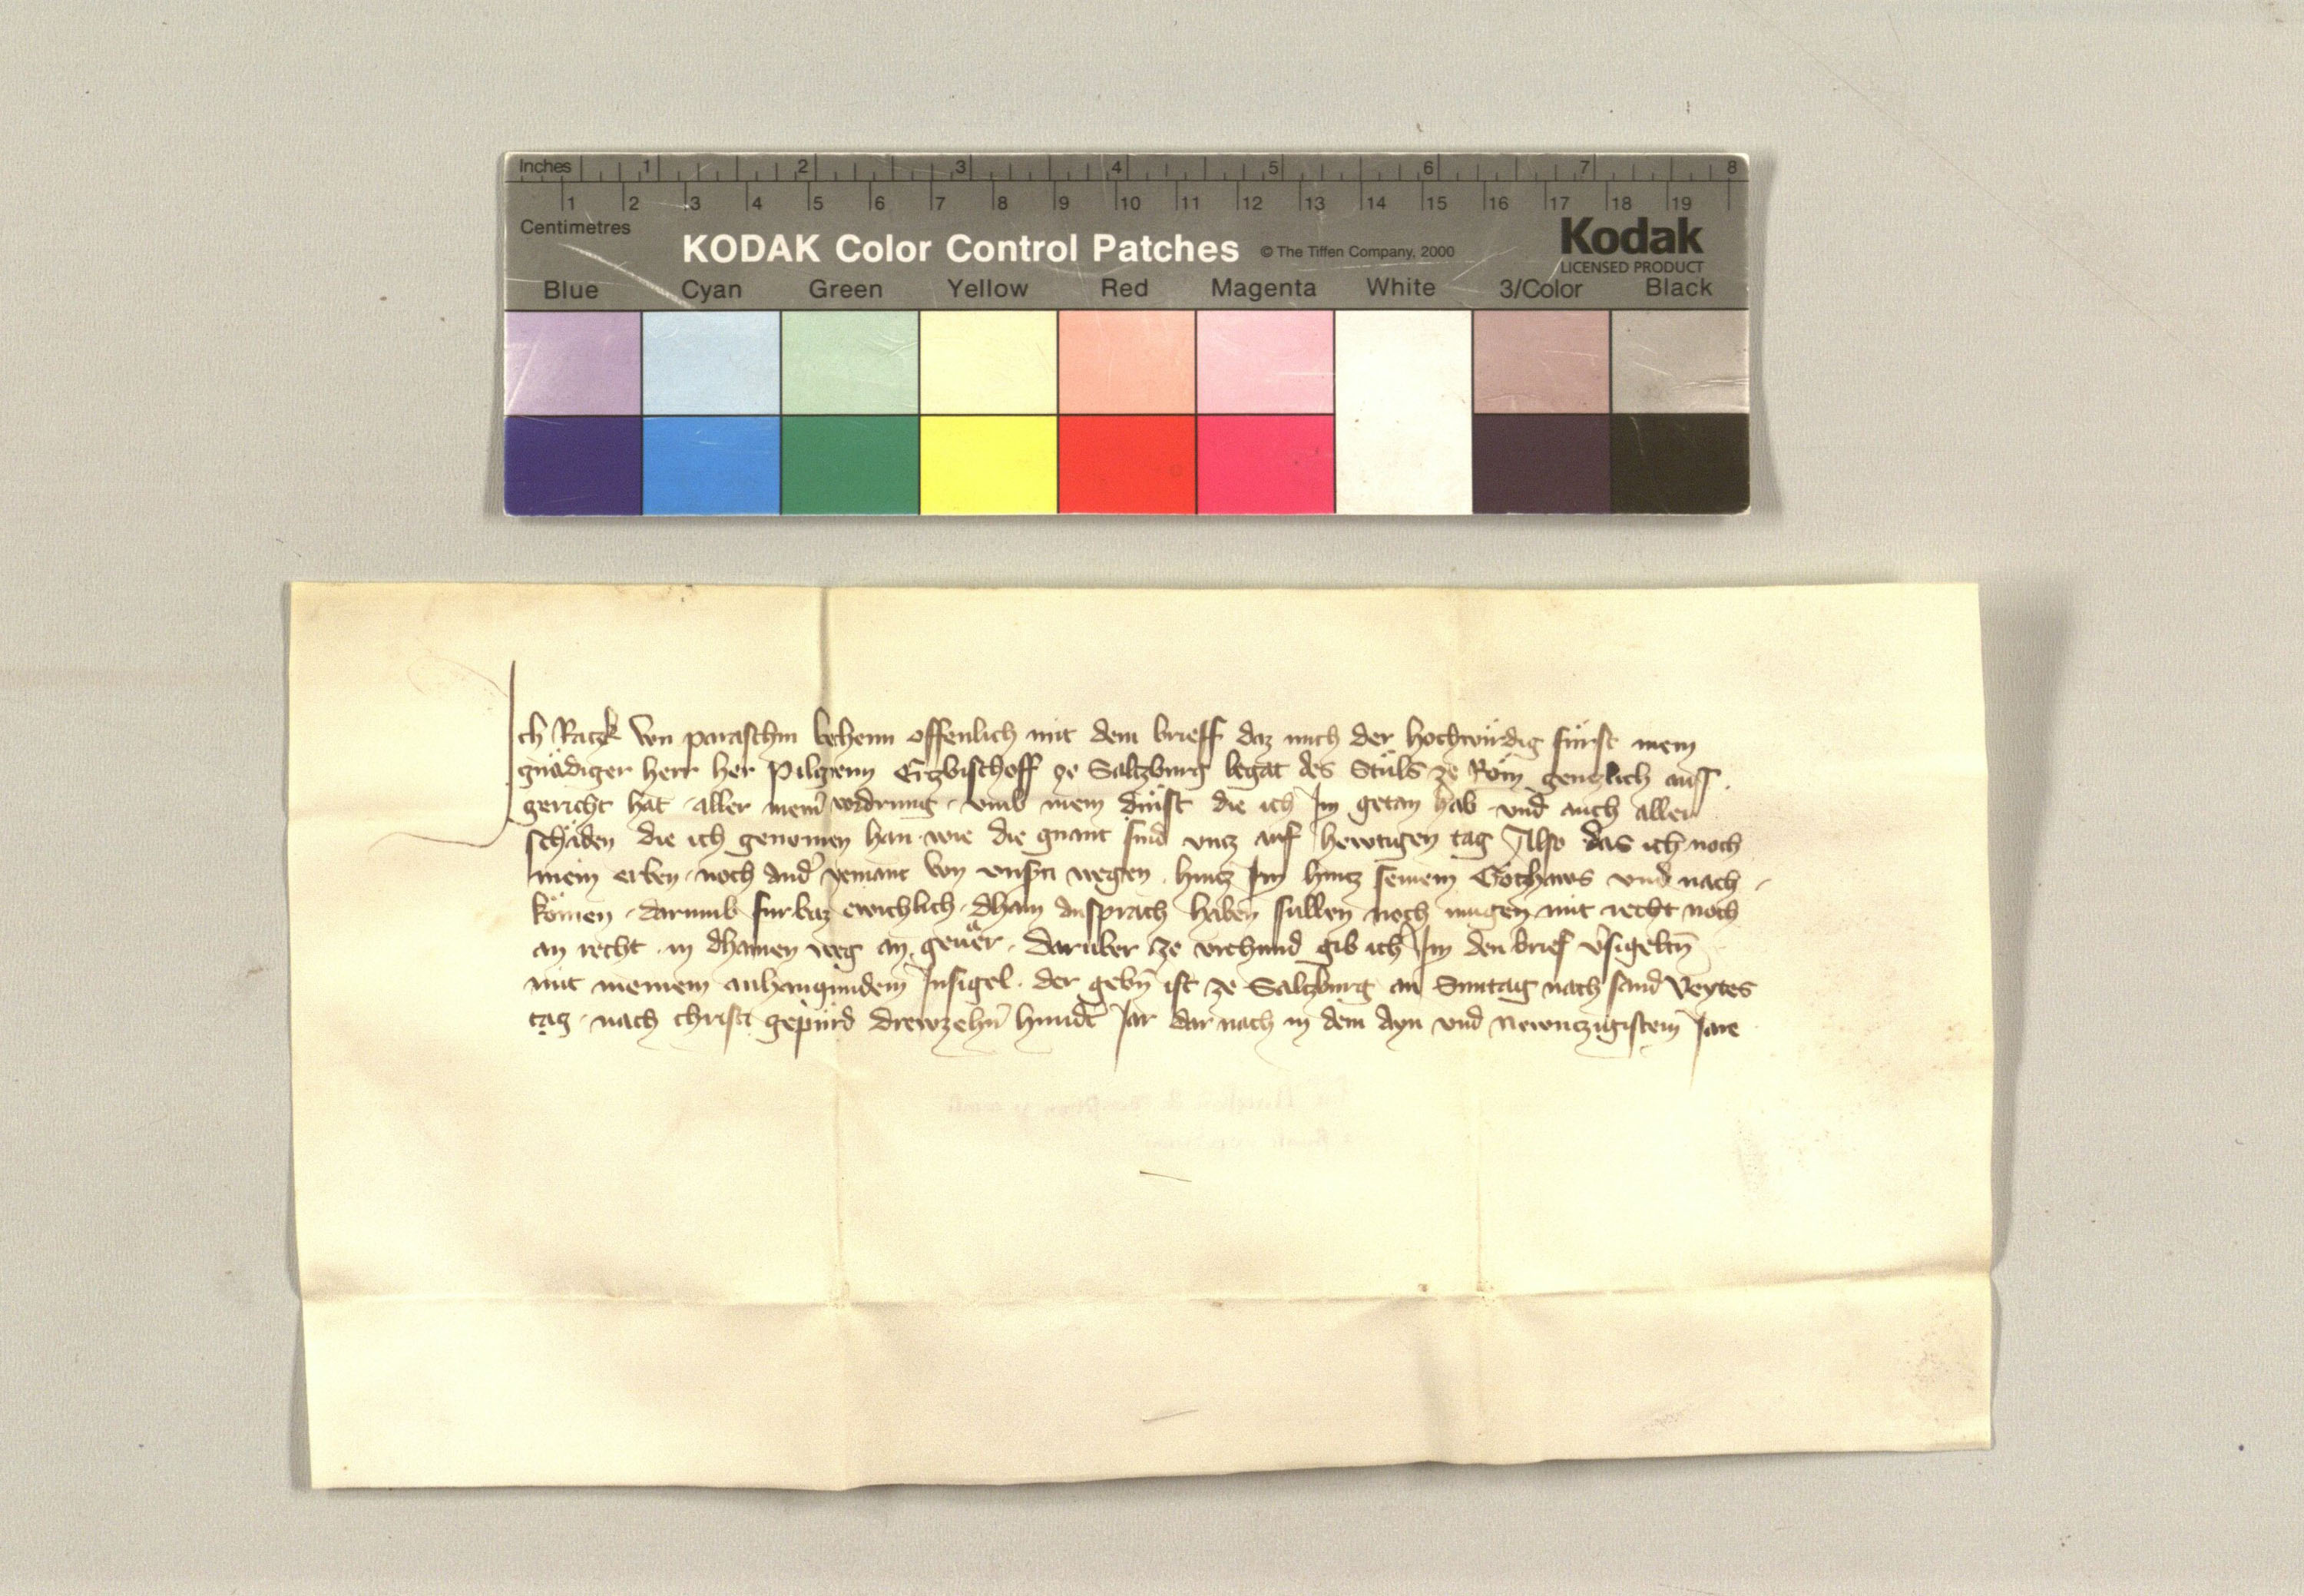 Inches 1 2 3 4 5 6 7 8
1 2 3 4 5 6 7 8 9 10 11 12 13 14 15 16 17 18 19
Centimetres
KODAK Color Control Patches © The Tiffen Company, 2000 Kodak
LICENSED PRODUCT
Blue Cyan Green Yellow Red Magenta White 3/Color Black
Ich Raczk von paraschin vehenn offenlich mit dem brieff daz mich der hochwirdig fürst mein
gnädiger herr her Pilgreim Erzbischoff ze Saltzburg legat des Stůls ze Rom genczlich auſ
gericht hat aller meiner vordrung vmb mein dinst die ich Im getan hab vnd auch aller
schäden die ich genomen han wie die gnant sind vncz auf hewtigen tag Also das ich noch
mein erben noch and' yemant von vnsn wegen hincz Im hincz seinem Gotzhaws vnd nach
komen darumb furbaz ewichlich dhain ansprach haben sullen noch mugen mit recht noch
an recht in dhainen weg an geuer Darüber ze vrchund gib ich Im den brief v'sigeltn
mit meinem anhangundem Insigel der gebn ist ze Saltzburg an Suntag nach sand Veytes
tag nach christi gepurd drewzehn hundt Jar dar nach in dem ayn vnd Newnczigistem Jare